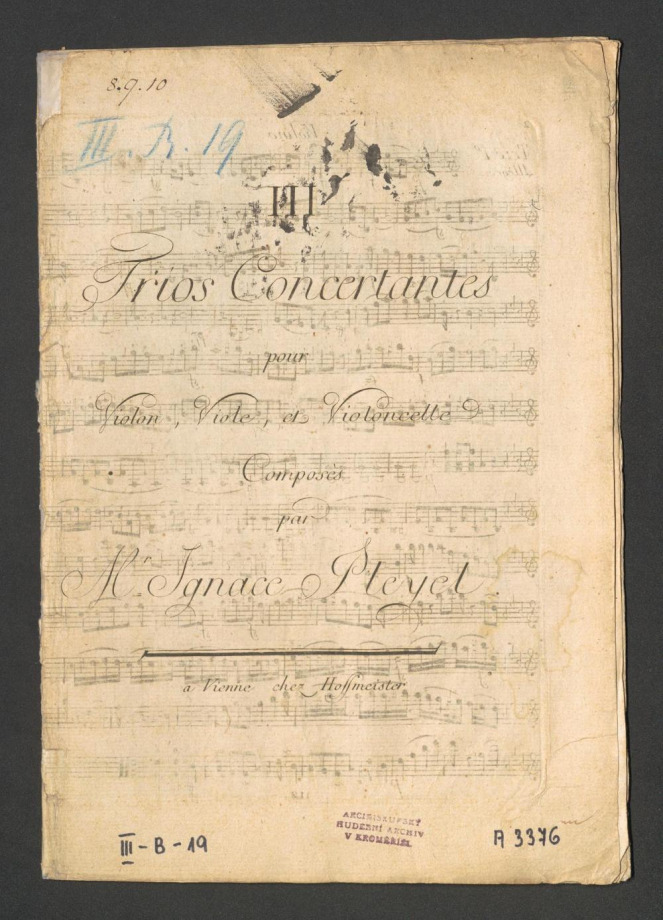 8.9.10
III. B. 19
III
Trios Concertantes
pour
Violon, Viole, et Violoncelle
Composés
par
Mr. Ignace Pleyel.
a Vienne chez Hoffmeister
ARCIBISKUPSKÝ
HUDEBNÍ ARCHIV
V KROMĚŘÍŽI.
III - B - 19
A 3376